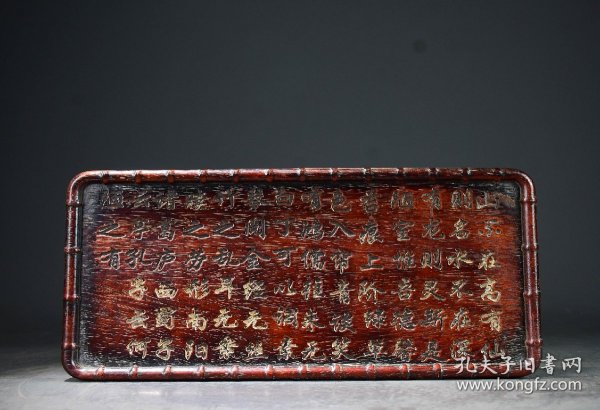 山不在高有仙
則名水不在深
有龍則灵斯是
陋室惟吾德馨
苔痕上階綠草
色入帘青談笑
有鴻儒往來无
白丁可以調素
琴閱金經无絲
竹之亂耳无案
牘之勞形南陽
諸葛廬西蜀子
云亭孔子云何
陋之有
孔夫子旧书网
www.kongfz.com